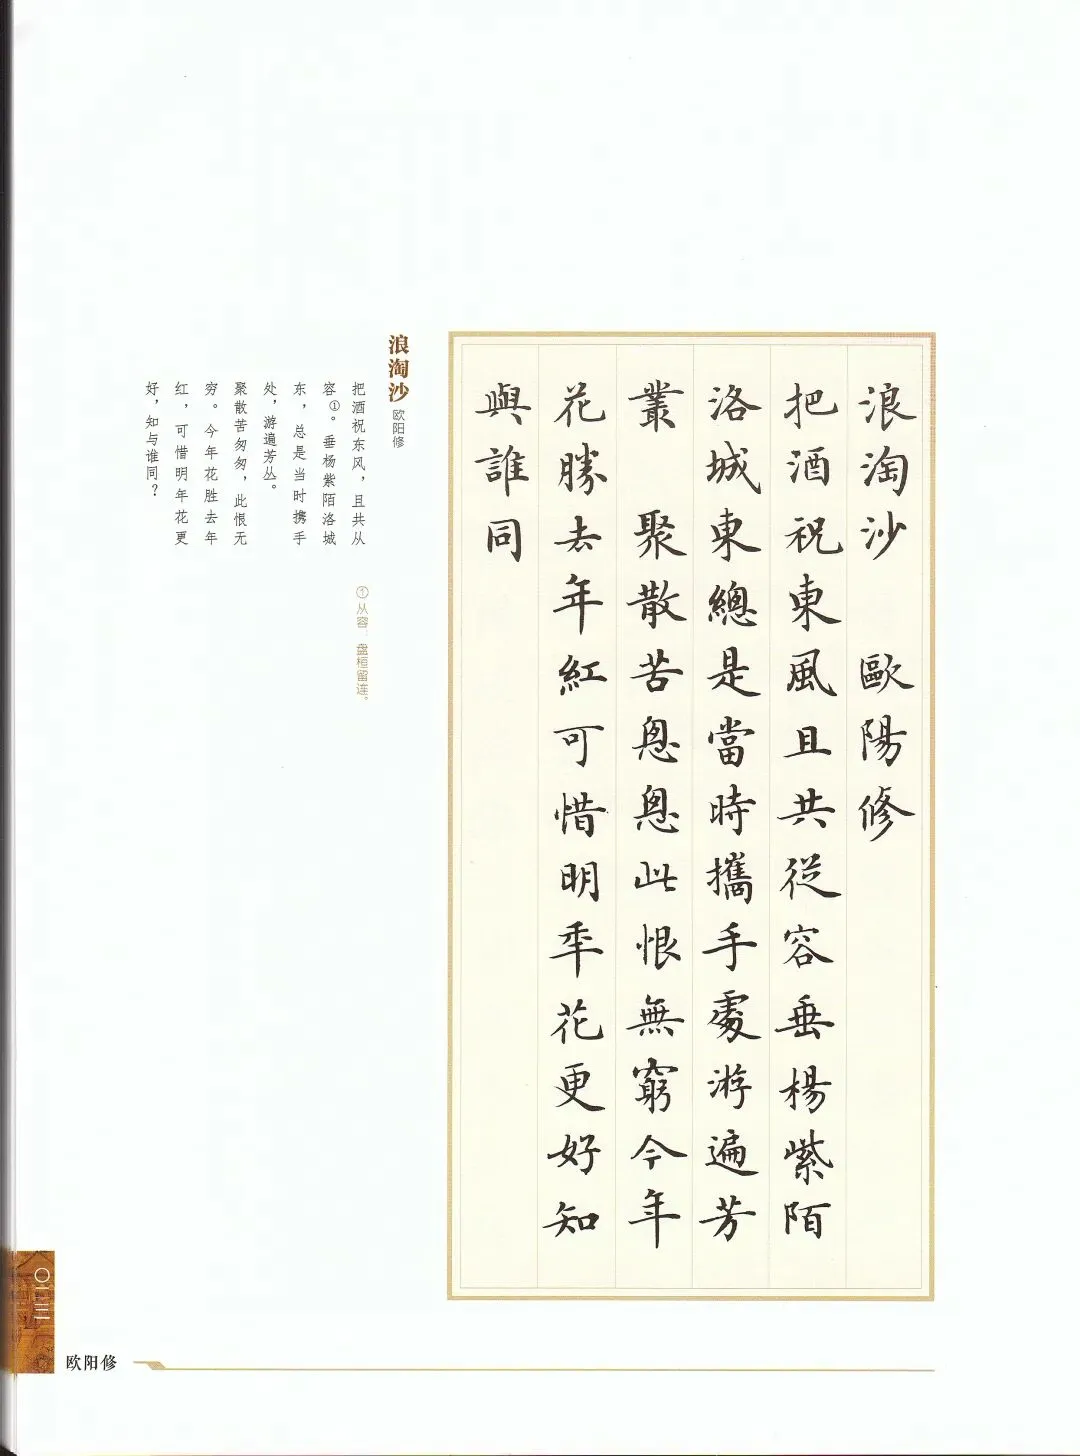 浪淘沙 歐陽修
把酒祝東風且共從容垂楊紫陌
洛城東總是當時攜手處游遍芳
叢 聚散苦恖恖此恨無窮今年
花勝去年紅可惜明年花更好知
與誰同
浪淘沙 欧阳修
把酒祝东风，且共从
容①。垂杨紫陌洛城
东，总是当时携手
处，游遍芳丛。
聚散苦匆匆，此恨无
穷。今年花胜去年
红，可惜明年花更
好，知与谁同？
①从容：盘桓留连。
〇一三
欧阳修